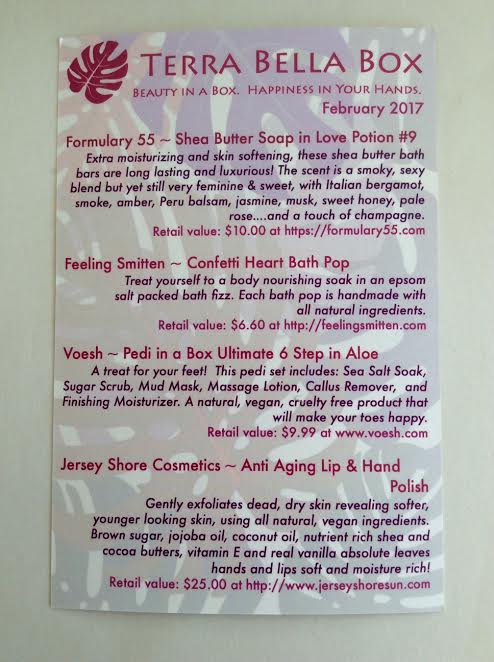 TERRA BELLA BOX
BEAUTY IN A BOX. HAPPINESS IN YOUR HANDS.
February 2017
Formulary 55 ~ Shea Butter Soap in Love Potion #9
Extra moisturizing and skin softening, these shea butter bath
bars are long lasting and luxurious! The scent is a smoky, sexy
blend but yet still very feminine & sweet, with Italian bergamot,
smoke, amber, Peru balsam, jasmine, musk, sweet honey, pale
rose....and a touch of champagne.
Retail value: $10.00 at https://formulary55.com
Feeling Smitten ~ Confetti Heart Bath Pop
Treat yourself to a body nourishing soak in an epsom
salt packed bath fizz. Each bath pop is handmade with
all natural ingredients.
Retail value: $6.60 at http://feelingsmitten.com
Voesh ~ Pedi in a Box Ultimate 6 Step in Aloe
A treat for your feet! This pedi set includes: Sea Salt Soak,
Sugar Scrub, Mud Mask, Massage Lotion, Callus Remover, and
Finishing Moisturizer. A natural, vegan, cruelty free product that
will make your toes happy.
Retail value: $9.99 at www.voesh.com
Jersey Shore Cosmetics ~ Anti Aging Lip & Hand
Polish
Gently exfoliates dead, dry skin revealing softer,
younger looking skin, using all natural, vegan ingredients.
Brown sugar, jojoba oil, coconut oil, nutrient rich shea and
cocoa butters, vitamin E and real vanilla absolute leaves
hands and lips soft and moisture rich!
Retail value: $25.00 at http://www.jerseyshoresun.com